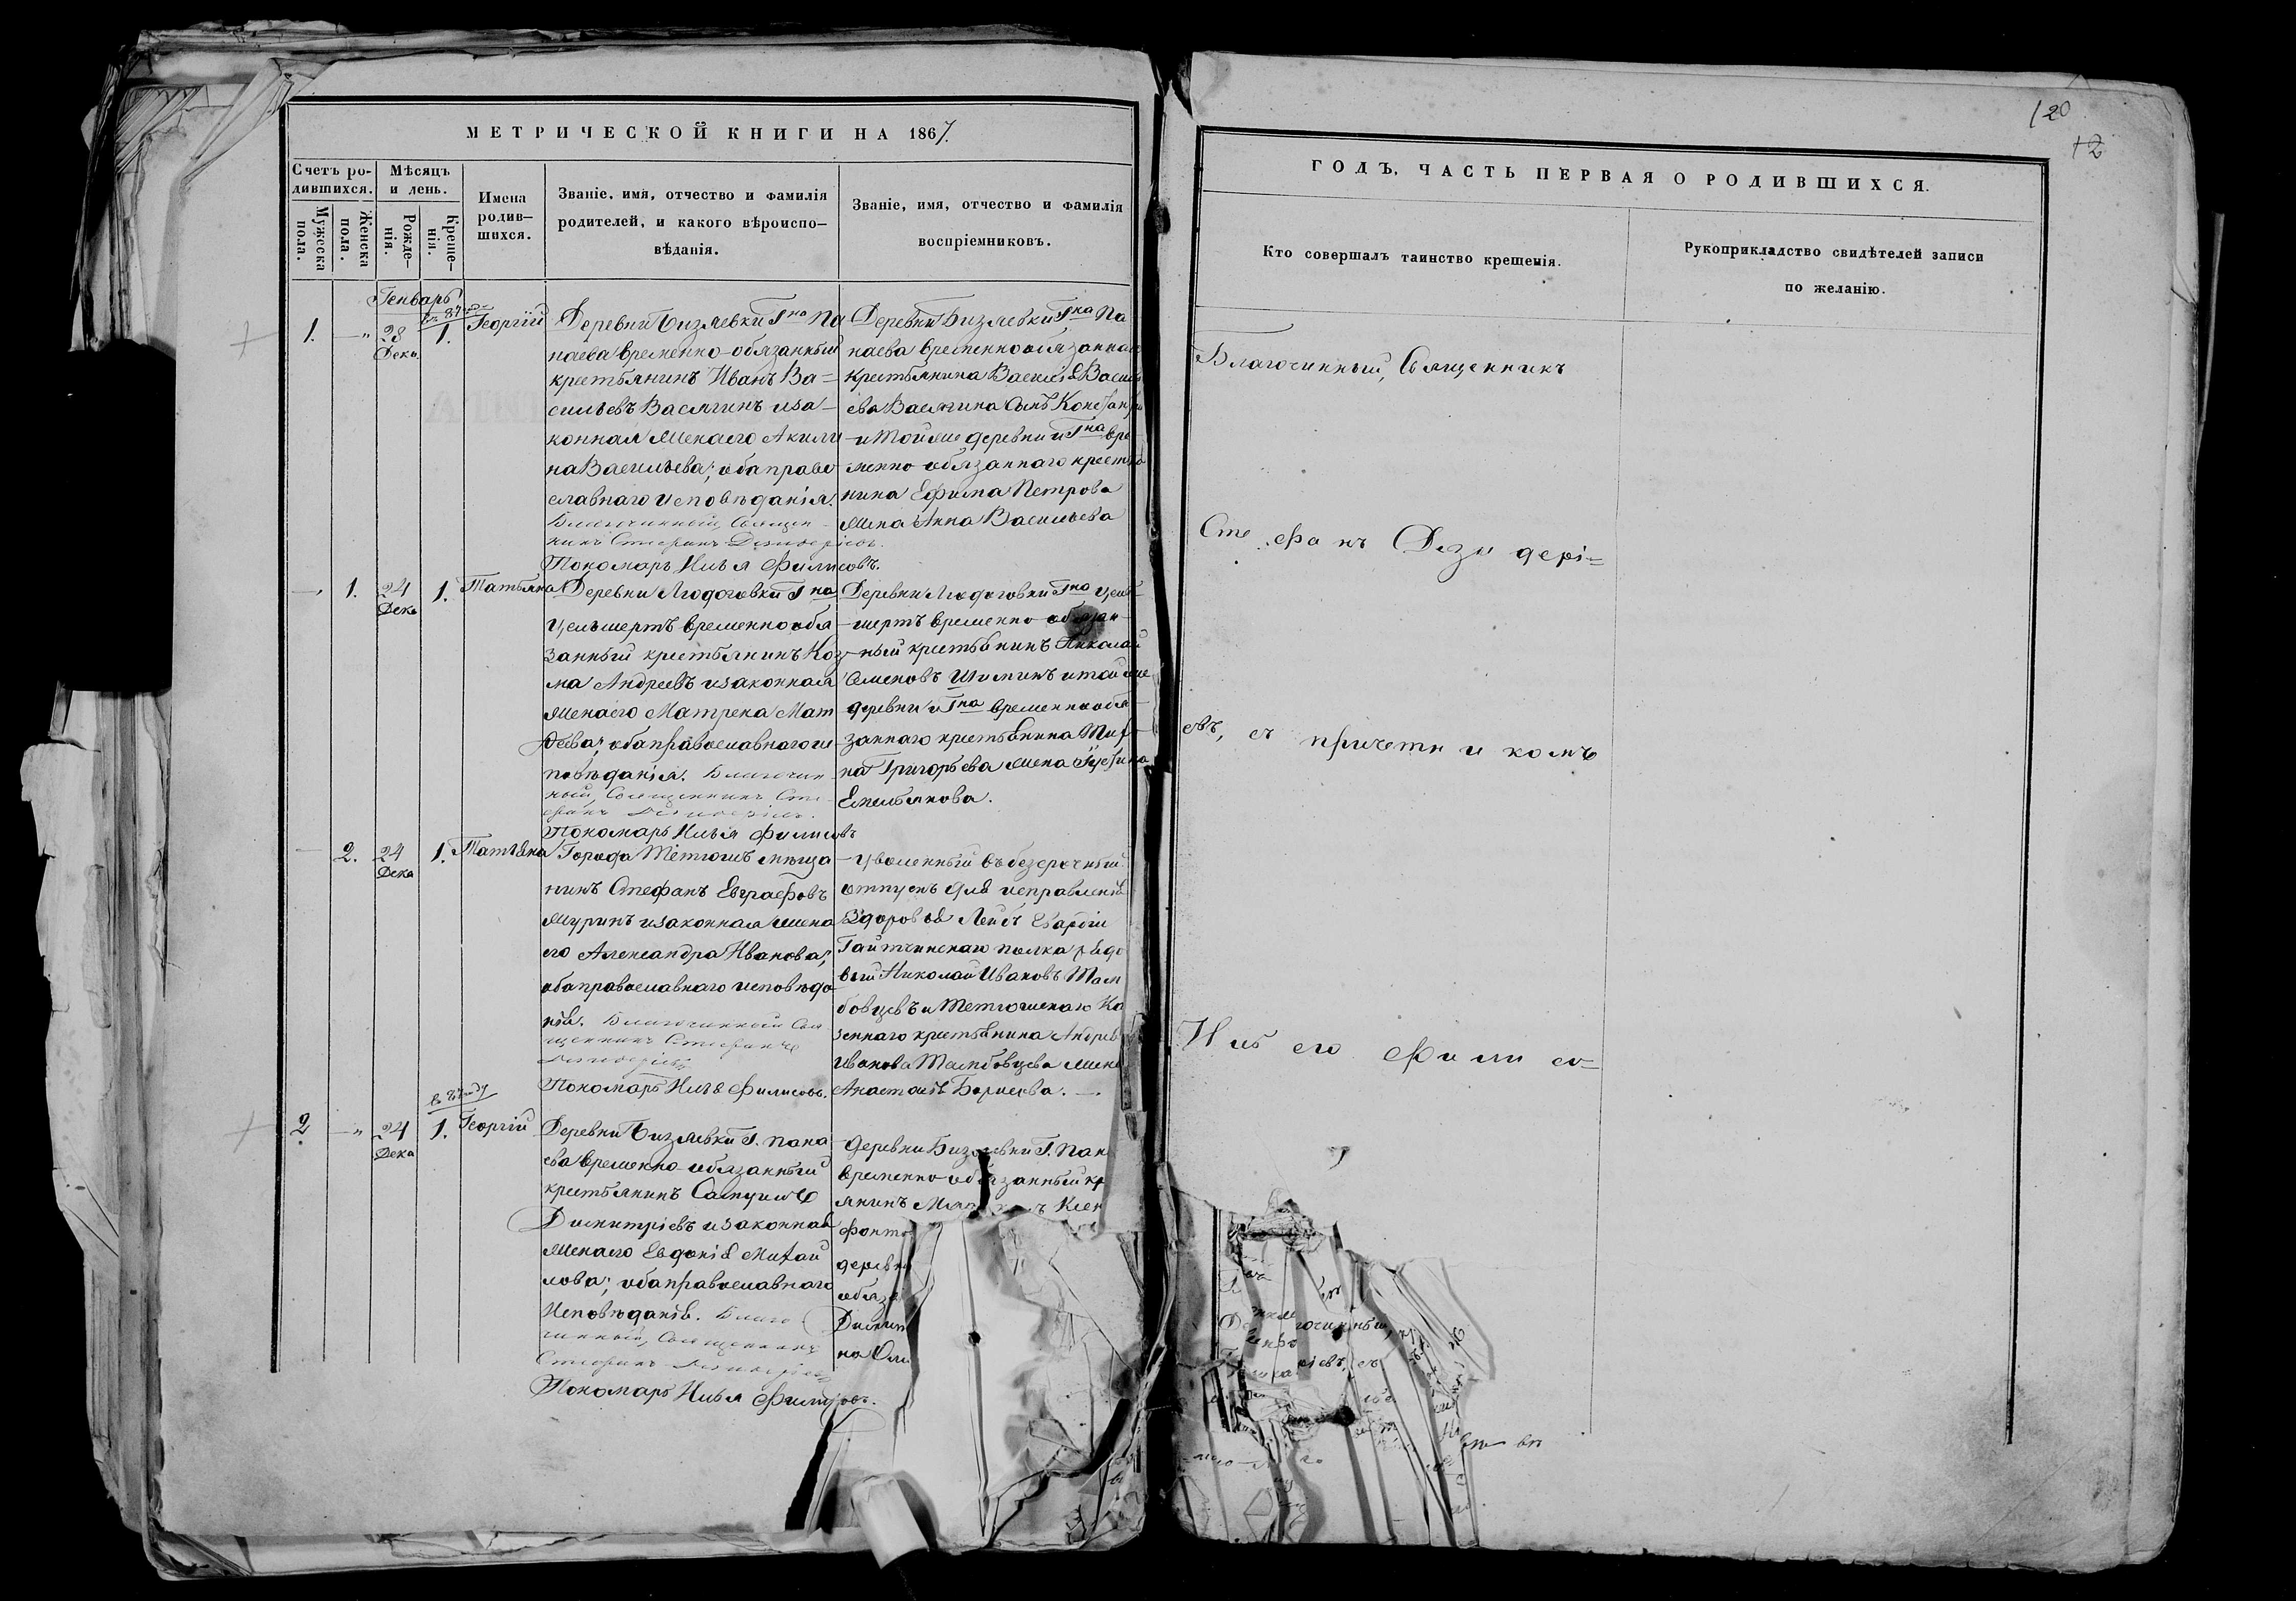 МЕТРИЧЕСКОЙ КНИГИ НА 1867.
Счетъ ро-
дившихся.
Мѣсяцъ
и день.
Имена
родив-
шихся.
Званіе, имя, отчество и фамилія
родителей, и какого вѣроиспо-
вѣданія.
Званіе, имя, отчество и фамилія
воспріемниковъ.
Мужеска
пола.
Женска
пола.
Рожде-
нія.
Креще-
нія.
Генварь
1. — „ 28 Дека. 1. Георгій
Деревни Бизяевки Г на Па
наева временно-обязанный
крестьянинъ Иванъ Ва=
сильевъ Васягинъ и за-
конная жена его Акили
на Васильева; оба право
славнаго исповѣданія.
Благочинный, Священ-
никъ Стефанъ Дезидеріевъ.
Пономарь Илья Филисовъ.
Деревни Бизяевки Г на Па
наева временнообязаннаго
крестьянина Василія Василь
ева Васягина сынъ Константи
и той же деревни и Г на вре
менно-обязаннаго крестья
нина Ефима Петрова
жена Анна Васильева
— 1. 24 Дека 1. Татьяна
Деревни Людоговки Г на
Цельшертъ временнообя
занный крестьянинъ Коз
ма Андреевъ и законная
жена его Матрена Мат
ѳеева; оба православнаго ис
повѣданія. Благочин
ный, Священникъ Сте-
фанъ Дезидеріевъ.
Пономарь Илья Филисовъ
Деревни Людоговки Г на Цель
шертъ временно-обязан
ный крестьянинъ Николай
Семеновъ и той же
деревни и Г на временнообя
заннаго крестьянина
на Григорьева жена
Емельянова.
— 2. 24 Дека 1. Татьяна
Города Тетюшъ мѣща
нинъ Стефанъ Евграфовъ
Муринъ и законная жена
его Александра Иванова;
оба православнаго исповѣда
нія. Благочинный Свя
щенникъ Стефанъ
Дезидеріевъ
Пономарь Илья Филисовъ.
Уволенный въ безсрочный
отпускъ для исправленія
здоровья Лейбъ Гвардіи
Гатчинскаго полка рядо
вый Николай Ивановъ Там
бовцевъ и Тетюшскаго Ка
зеннаго крестьянина Андрея
Иванова Тамбовцева жена
Анастасія Борисова.
2. — „ 24 Дека 1. Георгій
Деревни Бизяевки Г. Пана
ева временно-обязанный
крестьянинъ Самуилъ
Димитріевъ и законная
жена его Евдокія Михай
лова; оба православнаго
Исповѣданія. Благо
чинный, Священникъ
Стефанъ Дезидеріевъ
Пономарь Илья Филисовъ.
Деревни Бизяевки Г. Пан
временно-обязанный кр
янинъ
деревни
обяза
Димит
120
12
ГОДЪ, ЧАСТЬ ПЕРВАЯ О РОДИВШИХСЯ.
Кто совершалъ таинство крещенія.
Рукоприкладство свидѣтелей записи
по желанію.
Благочинный, Священникъ
Стефанъ Дезидері=
евъ, съ причетникомъ
Ильею Филисо=